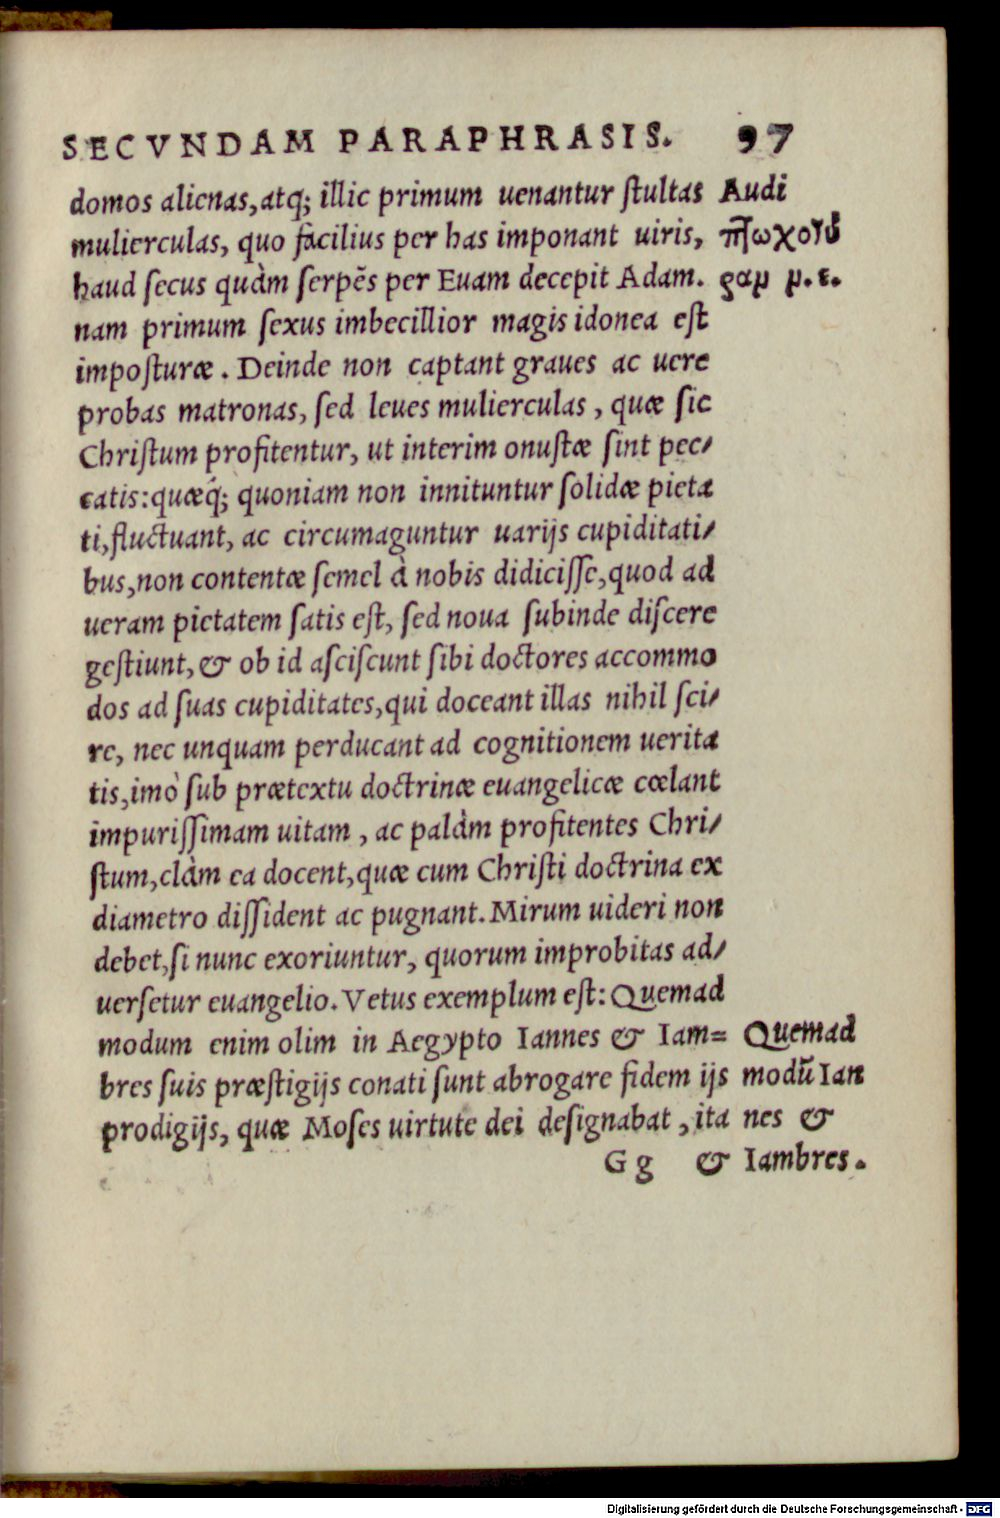 SECVNDAM PARAPHRASIS. 97
domos alienas, atq; illic primum uenantur ſtultas
mulierculas, quo facilius per has imponant uiris,
haud ſecus quàm ſerpẽs per Euam decepit Adam.
nam primum ſexus imbecillior magis idonea eſt
impoſturæ. Deinde non captant graues ac uere
probas matronas, ſed leues mulierculas, quæ ſic
Chriſtum profitentur, ut interim onuſtæ ſint pec/
catis: quæq́; quoniam non innituntur ſolidæ pieta
ti, fluctuant, ac circumaguntur uarijs cupiditati/
bus, non contentæ ſemel à nobis didiciſſe, quod ad
ueram pietatem ſatis eſt, ſed noua ſubinde diſcere
geſtiunt, & ob id aſciſcunt ſibi doctores accommo
dos ad ſuas cupiditates, qui doceant illas nihil ſci/
re, nec unquam perducant ad cognitionem uerita
tis, imò ſub prætextu doctrinæ euangelicæ cœlant
impuriſſimam uitam, ac palàm profitentes Chri/
ſtum, clàm ea docent, quæ cum Chriſti doctrina ex
diametro diſſident ac pugnant. Mirum uideri non
debet, ſi nunc exoriuntur, quorum improbitas ad/
uerſetur euangelio. Vetus exemplum eſt: Quemad
modum enim olim in Aegypto Iannes & Iam=
bres ſuis præſtigijs conati ſunt abrogare fidem ijs
prodigijs, quæ Moſes uirtute dei deſignabat, ita
Gg &
Audi
Quemad
modũ Ian
nes &
Iambres.
Digitalisierung gefördert durch die Deutsche Forschungsgemeinschaft - DFG